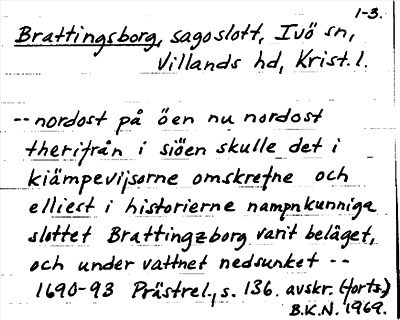 1-3.
Brattingsborg, sagoslott, Ivö sn,
Villands hd, Krist. l.
-- nordost på öen nu nordost
therifrån i siöen skulle det i
kiämpevijsorne omskrefne och
elliest i historierne nampnkunniga
slottet Brattingzborg varit beläget,
och under vattnet nedsunket --
1690-93 Prästrel., s. 136. avskr. (forts.)
B.K.N. 1969.